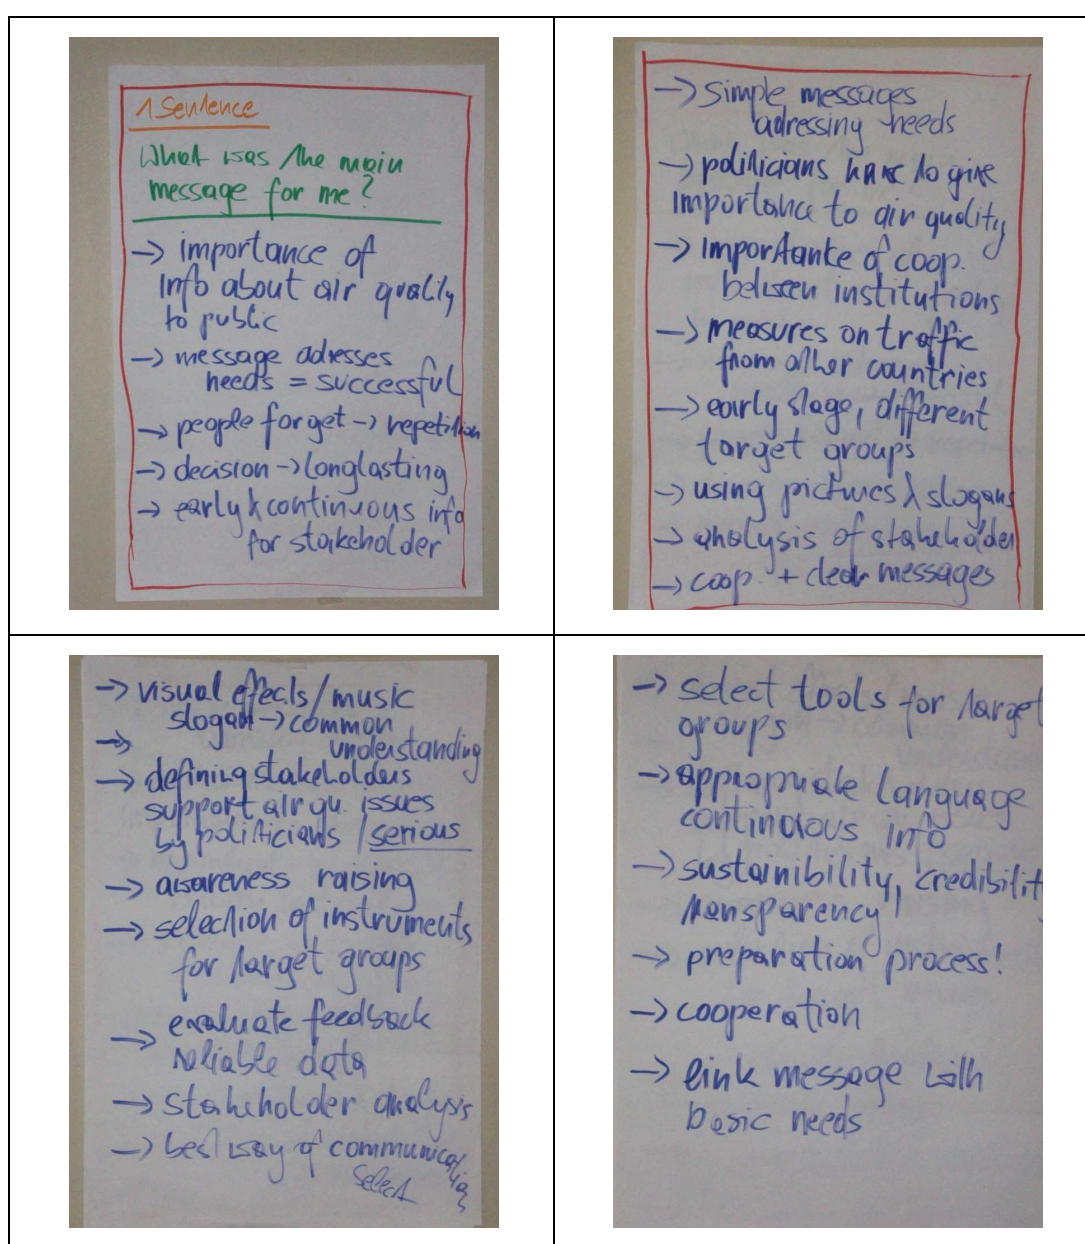 1 Sentence
What was the main
message for me?
→ importance of
info about air quality
to public
→ message adresses
needs = successful
→ people forget → repetition
→ decision → longlasting
→ early & continuous info
for stakeholder
→ simple messages
adressing needs
→ politicians have to give
importance to air quality
→ importance of coop.
between institutions
→ measures on traffic
from other countries
→ early stage, different
target groups
→ using pictures & slogans
→ analysis of stakeholder
→ coop. + clear messages
→ visual effects/music
slogan → common
→ understanding
→ defining stakeholders
support air qu. issues
by politicians / serious
→ awareness raising
→ selection of instruments
for target groups
→ evaluate feedback
reliable data
→ stakeholder analysis
→ best way of communication
select
→ select tools for target
groups
→ appropriate language
continuous info
→ sustainibility, credibility
transparency
→ preparation process!
→ cooperation
→ link message with
basic needs